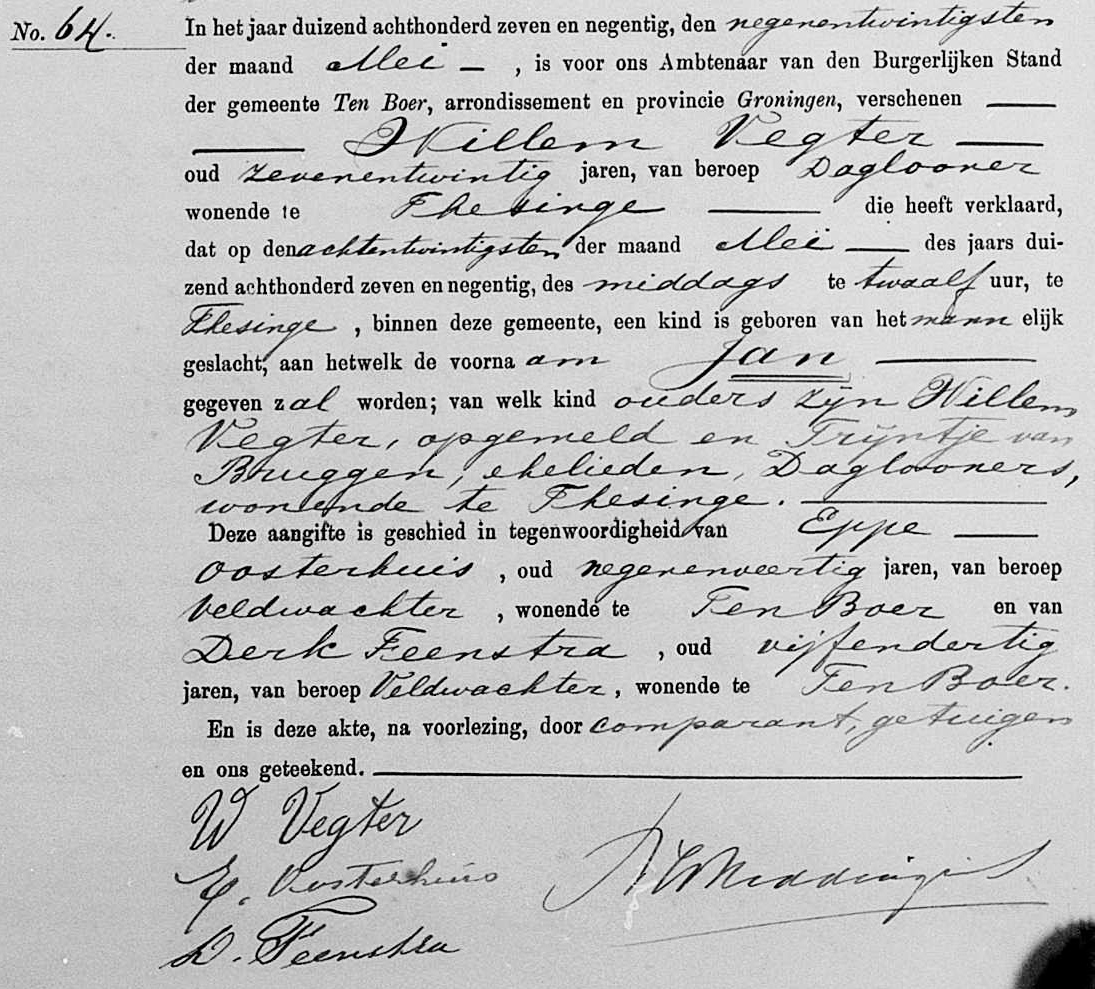 No. 64.
In het jaar duizend achthonderd zeven en negentig, den negenentwintigsten
der maand Mei — , is voor ons Ambtenaar van den Burgerlijken Stand
der gemeente Ten Boer, arrondissement en provincie Groningen, verschenen ——
—— Willem Vegter ——
oud zevenentwintig jaren, van beroep Daglooner
wonende te Thesinge —— die heeft verklaard,
dat op den achtentwintigsten der maand Mei —— des jaars dui-
zend achthonderd zeven en negentig, des middags te twaalf uur, te
Thesinge , binnen deze gemeente, een kind is geboren van het mannelijk
geslacht, aan hetwelk de voornaam Jan ——
gegeven zal worden; van welk kind ouders zijn Willem
Vegter, opgemeld en Trijntje van
Bruggen, ehelieden, Daglooners,
wonende te Thesinge. ——
Deze aangifte is geschied in tegenwoordigheid van Eppe ——
Oosterhuis , oud negenenveertig jaren, van beroep
Veldwachter , wonende te Ten Boer en van
Derk Feenstra , oud vijfendertig
jaren, van beroep Veldwachter, wonende te Ten Boer.
En is deze akte, na voorlezing, door comparant, getuigen
en ons geteekend. ——
W Vegter
E. Oosterhuis
D. Feenstra